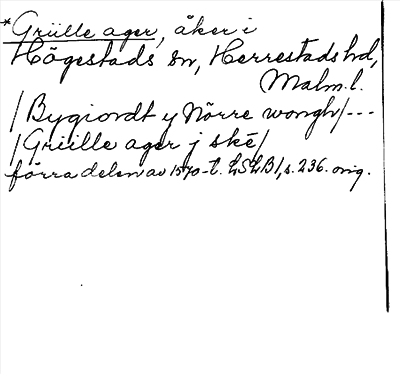 *Grülle ager, åker i
Högestads sn, Herrestads hd,
Malm. l.
/Bygiordt y Nörre wongh/---
/Grülle ager j skē/
förra delen av 1570-t. LSLB1, s. 236. orig.